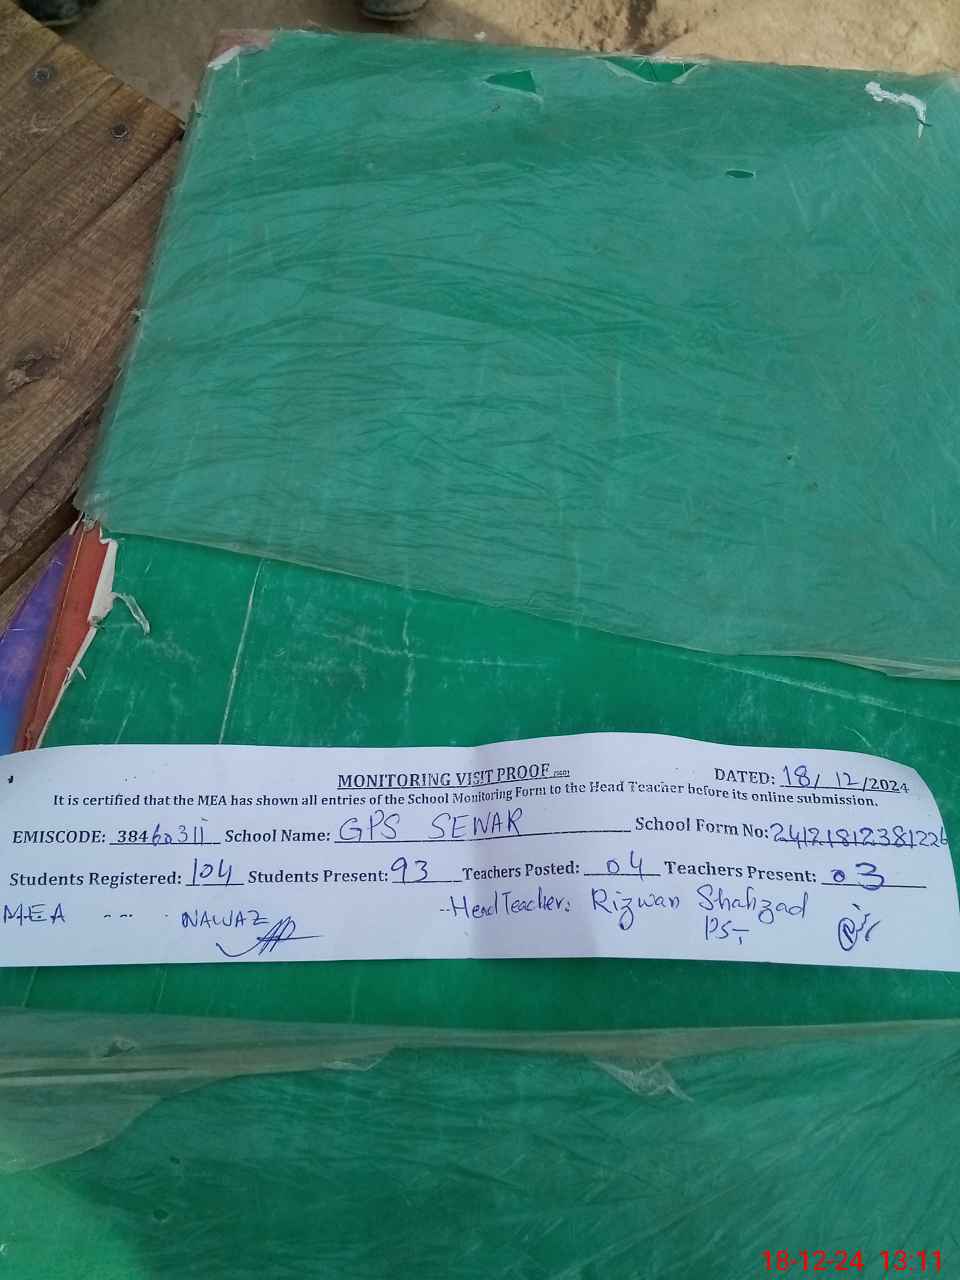 MONITORING VISIT PROOF
DATED: 18/12/2024
It is certified that the MEA has shown all entries of the School Monitoring Form to the Head Teacher before its online submission.
EMISCODE: 38460311 School Name: GPS SEWAR School Form No: 24121812381226
Students Registered: 104 Students Present: 93 Teachers Posted: 04 Teachers Present: 03
MEA NAWAZ Head Teacher: Rizwan Shahzad
PST
18-12-24 13:11